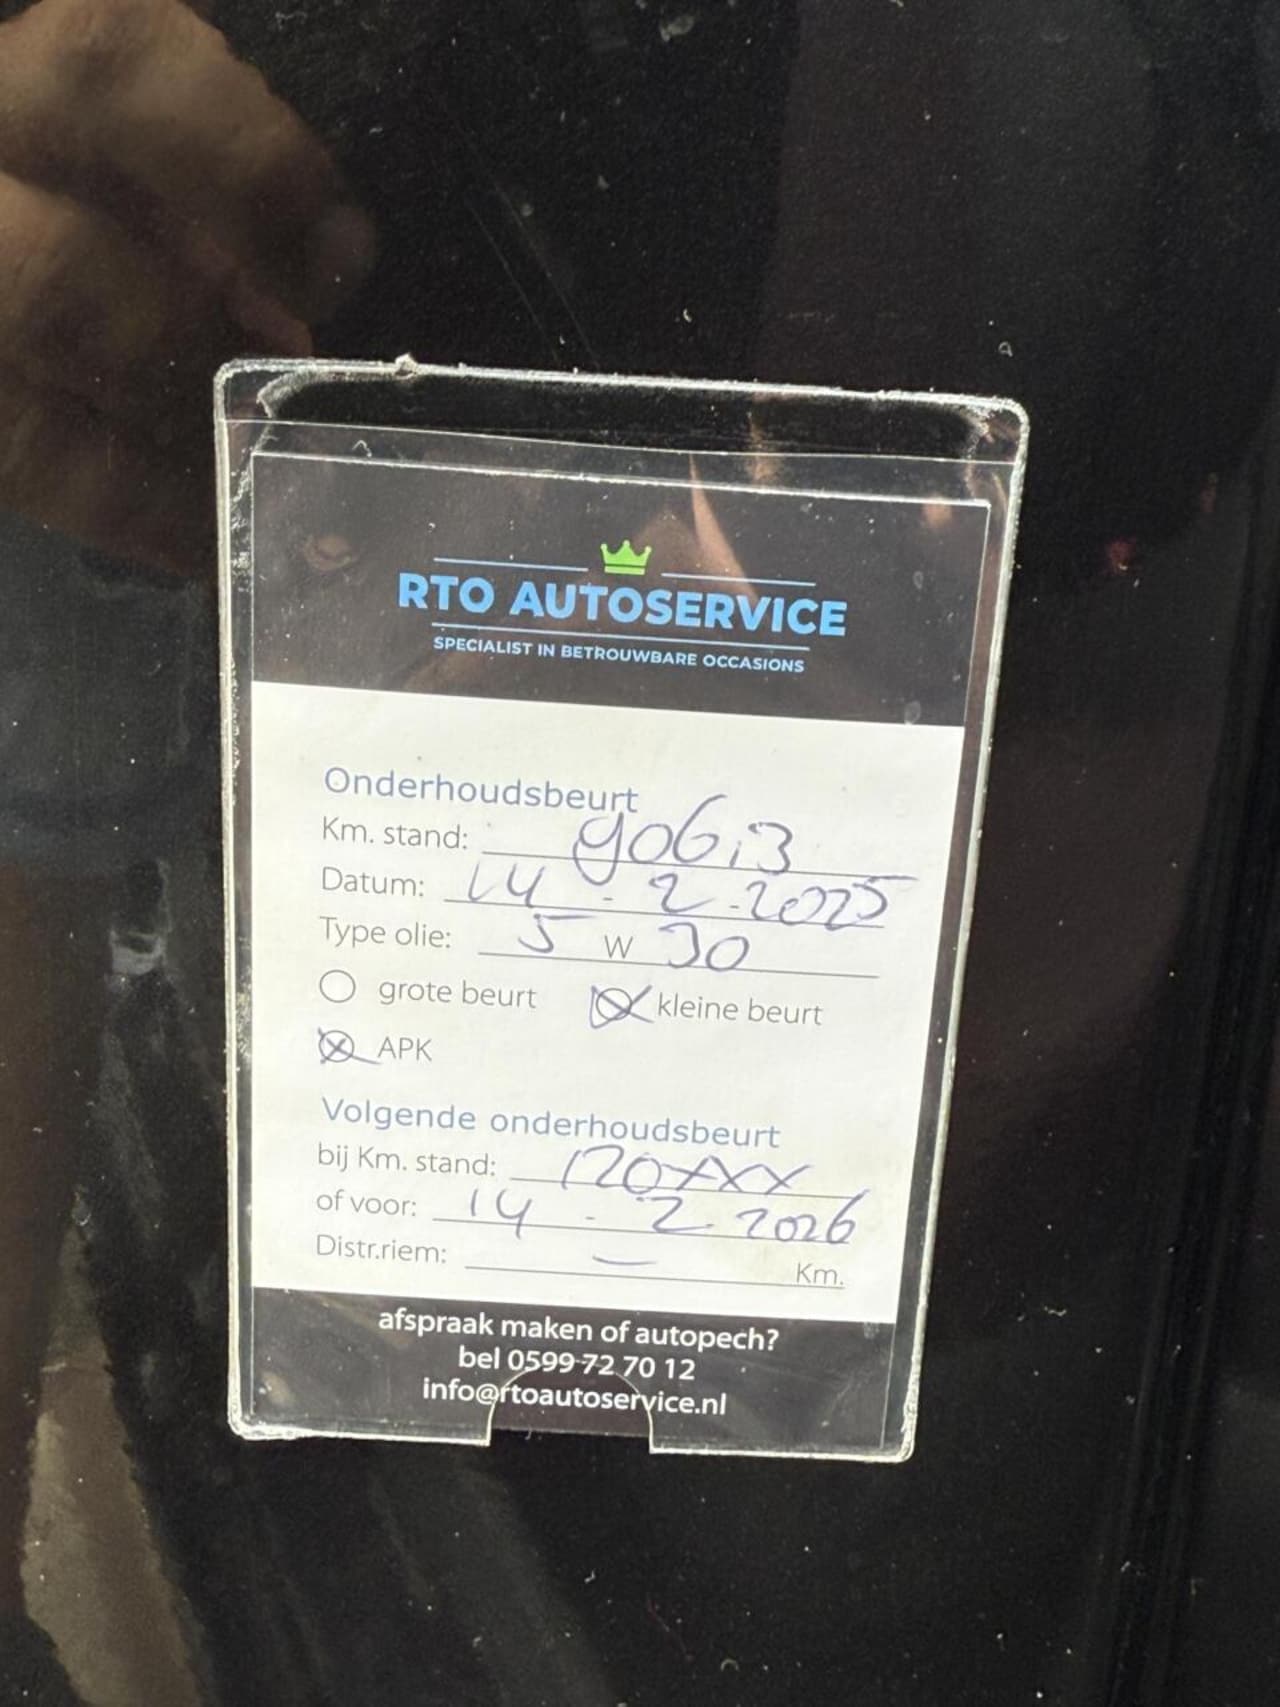 RTO AUTOSERVICE
SPECIALIST IN BETROUWBARE OCCASIONS
Onderhoudsbeurt
Km. stand: 90613
Datum: 14 - 2 - 2025
Type olie: 5 W 30
grote beurt kleine beurt
APK
Volgende onderhoudsbeurt
bij Km. stand: 120xxx
of voor: 14 - 2 - 2026
Distr.riem: — Km.
afspraak maken of autopech?
bel 0599 72 70 12
info@rtoautoservice.nl